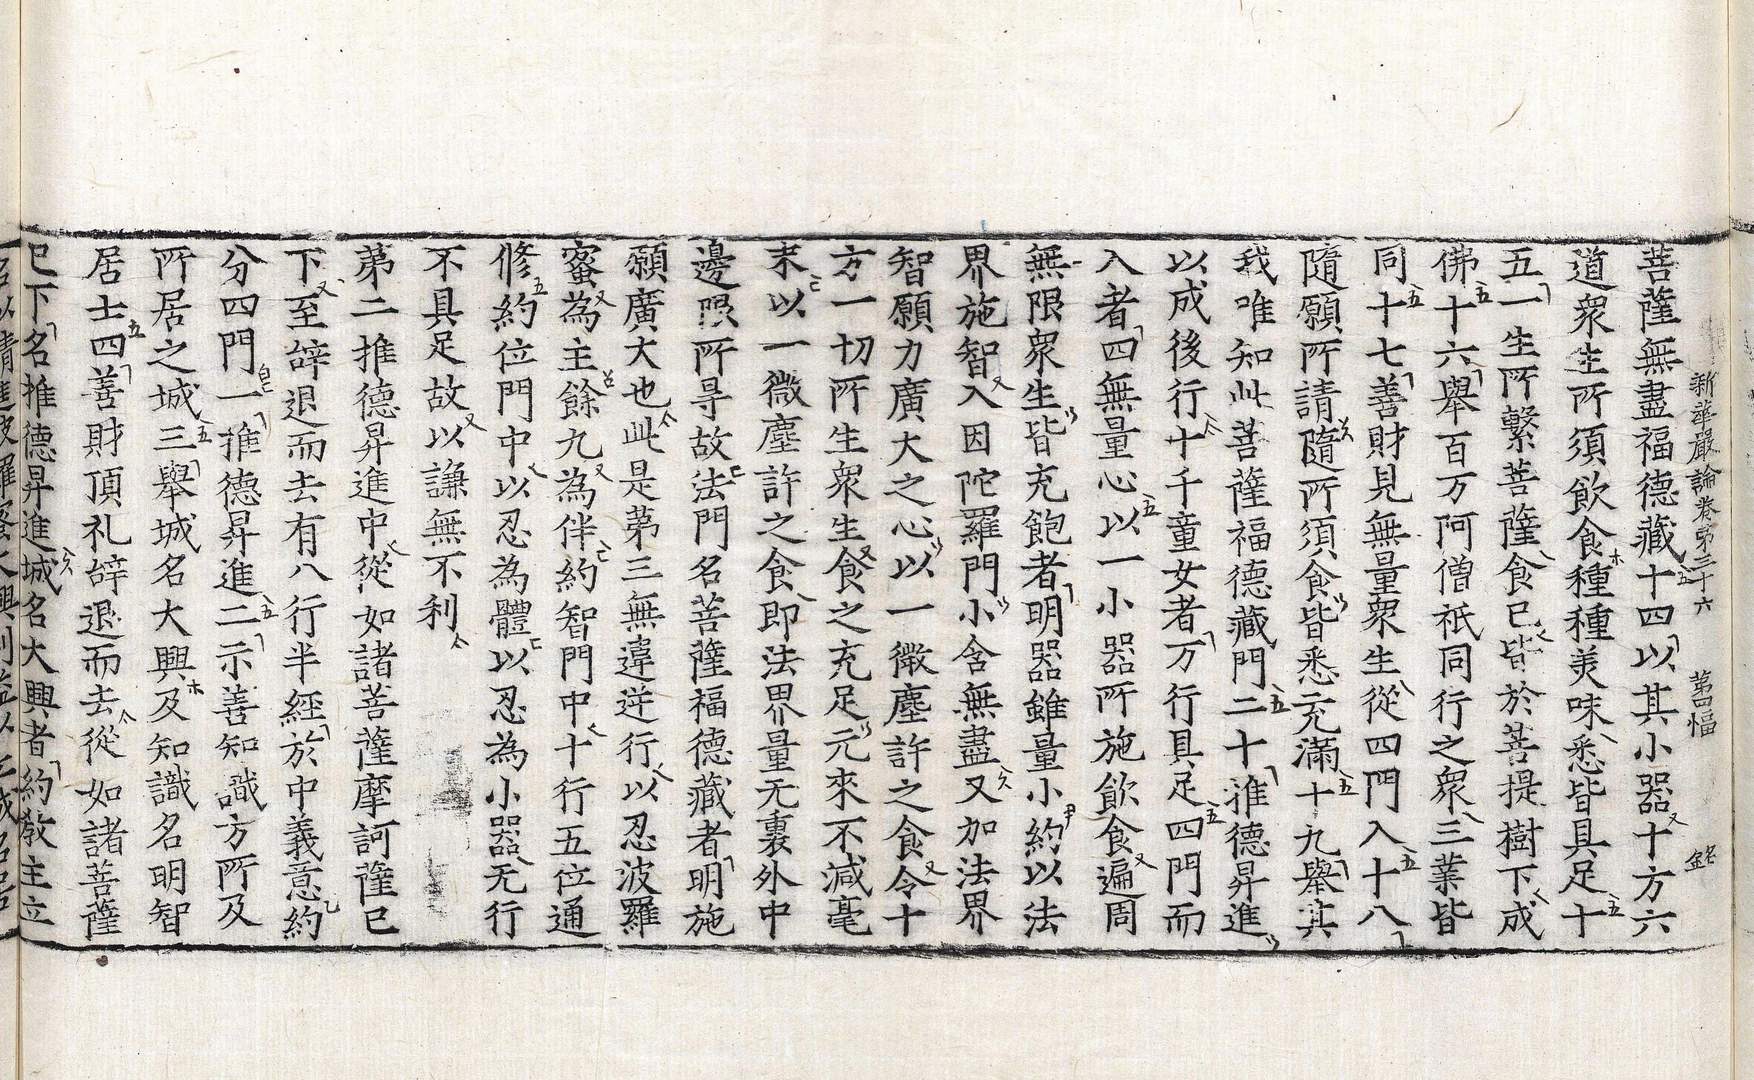 新華嚴論卷第三十六　第四幅　銘
菩薩無盡福德藏十四以其小器十方六
道衆生所須飲食種種美味悉皆具足十
五一生所繫菩薩食已皆於菩提樹下成
佛十六舉百万阿僧祇同行之衆三業皆
同十七善財見無量衆生從四門入十八
隨願所請隨所須食皆悉充滿十九舉其
我唯知此菩薩福德藏門二十推德昇進
以成後行十千童女者万行具足四門而
入者四無量心以一小器所施飲食遍周
無限衆生皆充飽者明器雖量小約以法
界施智入因陀羅門小含無盡又加法界
智願力廣大之心以一微塵許之食令十
方一切所生衆生食之充足元來不減毫
末以一微塵許之食即法界量无裏外中
邊限所寻故法門名菩薩福德藏者明施
願廣大也此是第三無違逆行以忍波羅
蜜為主餘九為伴約智門中十行五位通
修約位門中以忍為體以忍為小器无行
不具足故以謙無不利
第二推德昇進中從如諸菩薩摩訶薩已
下至辞退而去有八行半經於中義意約
分四門一推德昇進二示善知識方所及
所居之城三舉城名大興及知識名明智
居士四善財頂礼辞退而去從如諸菩薩
已下名推德昇進城名大興者約教主立